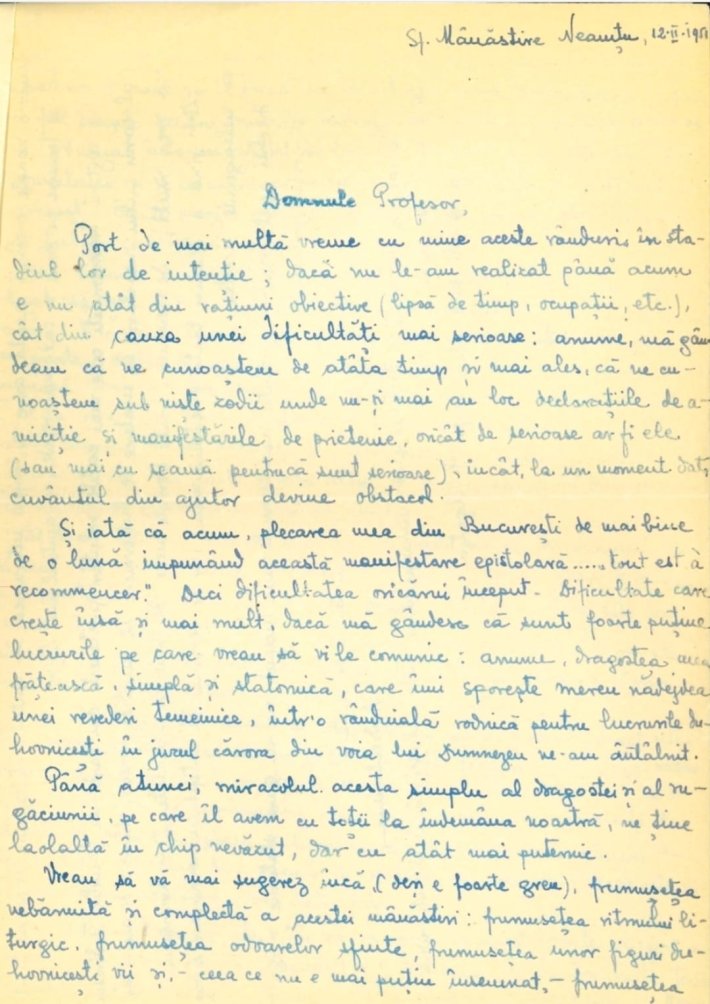 Sf. Mânăstire Neamțu, 12·II·1951
Domnule Profesor,
Port de mai multă vreme cu mine aceste rânduri, în sta-
diul lor de intenție; dacă nu le-am realizat până acum
e nu atât din rațiuni obiective (lipsă de timp, ocupații, etc.),
cât din cauza unei dificultăți mai serioase: anume, mă gân-
deam că ne cunoaștem de atâta timp și mai ales, că ne cu-
noaștem sub niște zodii unde nu-și mai au loc declarațiile de a-
miciție și manifestările de prietenie, oricât de serioase ar fi ele
(sau mai cu seamă pentrucă sunt serioase), încât, la un moment dat,
cuvântul din ajutor devine obstacol.
Și iată că acum, plecarea mea din București de mai bine
de o lună impunând această manifestare epistolară..... „tout est à
recommencer." Deci dificultatea oricărui început. Dificultate care
crește însă și mai mult, dacă mă gândesc că sunt foarte puține
lucrurile pe care vreau să vi le comunic: anume, dragostea mea
frățească, simplă și statornică, care îmi sporește mereu nădejdea
unei revederi temeinice, într'o rânduială rodnică pentru lucrurile du-
hovnicești în jurul cărora din voia lui Dumnezeu ne-am întâlnit.
Până atunci, miracolul acesta simplu al dragostei și al ru-
găciunii, pe care îl avem cu toții la îndemâna noastră, ne ține
laolaltă în chip nevăzut, dar cu atât mai puternic.
Vreau să vă mai sugerez încă, (deși e foarte greu), frumusețea
nebănuită și complectă a acestei mânăstiri: frumusețea ritmului li-
turgic, frumusețea odoarelor sfinte, frumusețea unor figuri du-
hovnicești vii și, - ceea ce nu e mai puțin însemnat, - frumusețea